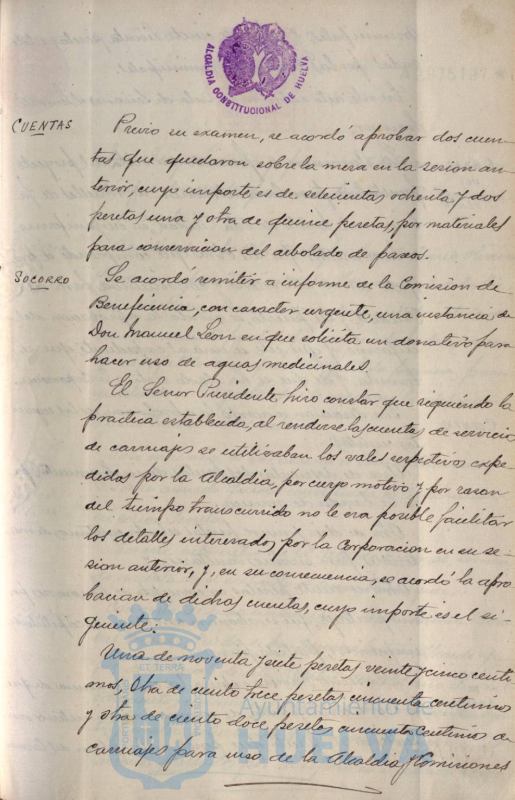 ALCALDIA CONSTITUCIONAL DE HUELVA
CUENTAS
Previo su examen, se acordó aprobar dos cuen-
tas que quedaron sobre la mesa en la sesion an-
terior, cuyo importe es de setecientas ochenta y dos
pesetas una y otra de quince pesetas, por materiales
para conservacion del arbolado de paseos.
SOCORRO
Se acordó remitir a informe de la Comision de
Beneficencia, con caracter urgente, una instancia de
Don Manuel Leon en que solicita un donativo para
hacer uso de aguas medicinales.
El Señor Presidente hizo constar que siguiendo la
practica establecida, al rendirse las cuentas de servicio
de carruajes se utilizaban los vales respectivos expe-
didos por la Alcaldia, por cuyo motivo y por razon
del tiempo transcurrido no le era posible facilitar
los detalles interesados por la Corporacion en su se-
sion anterior, y, en su consecuencia, se acordó la apro-
bacion de dichas cuentas, cuyo importe es el si-
guiente:
Una de noventa y siete pesetas veinte y cinco centi-
mos, otra de ciento trece pesetas cincuenta centimos
y otra de ciento doce pesetas cincuenta centimos de
carruajes para uso de la Alcaldia y Comisiones
Ayuntamiento de
HUELVA